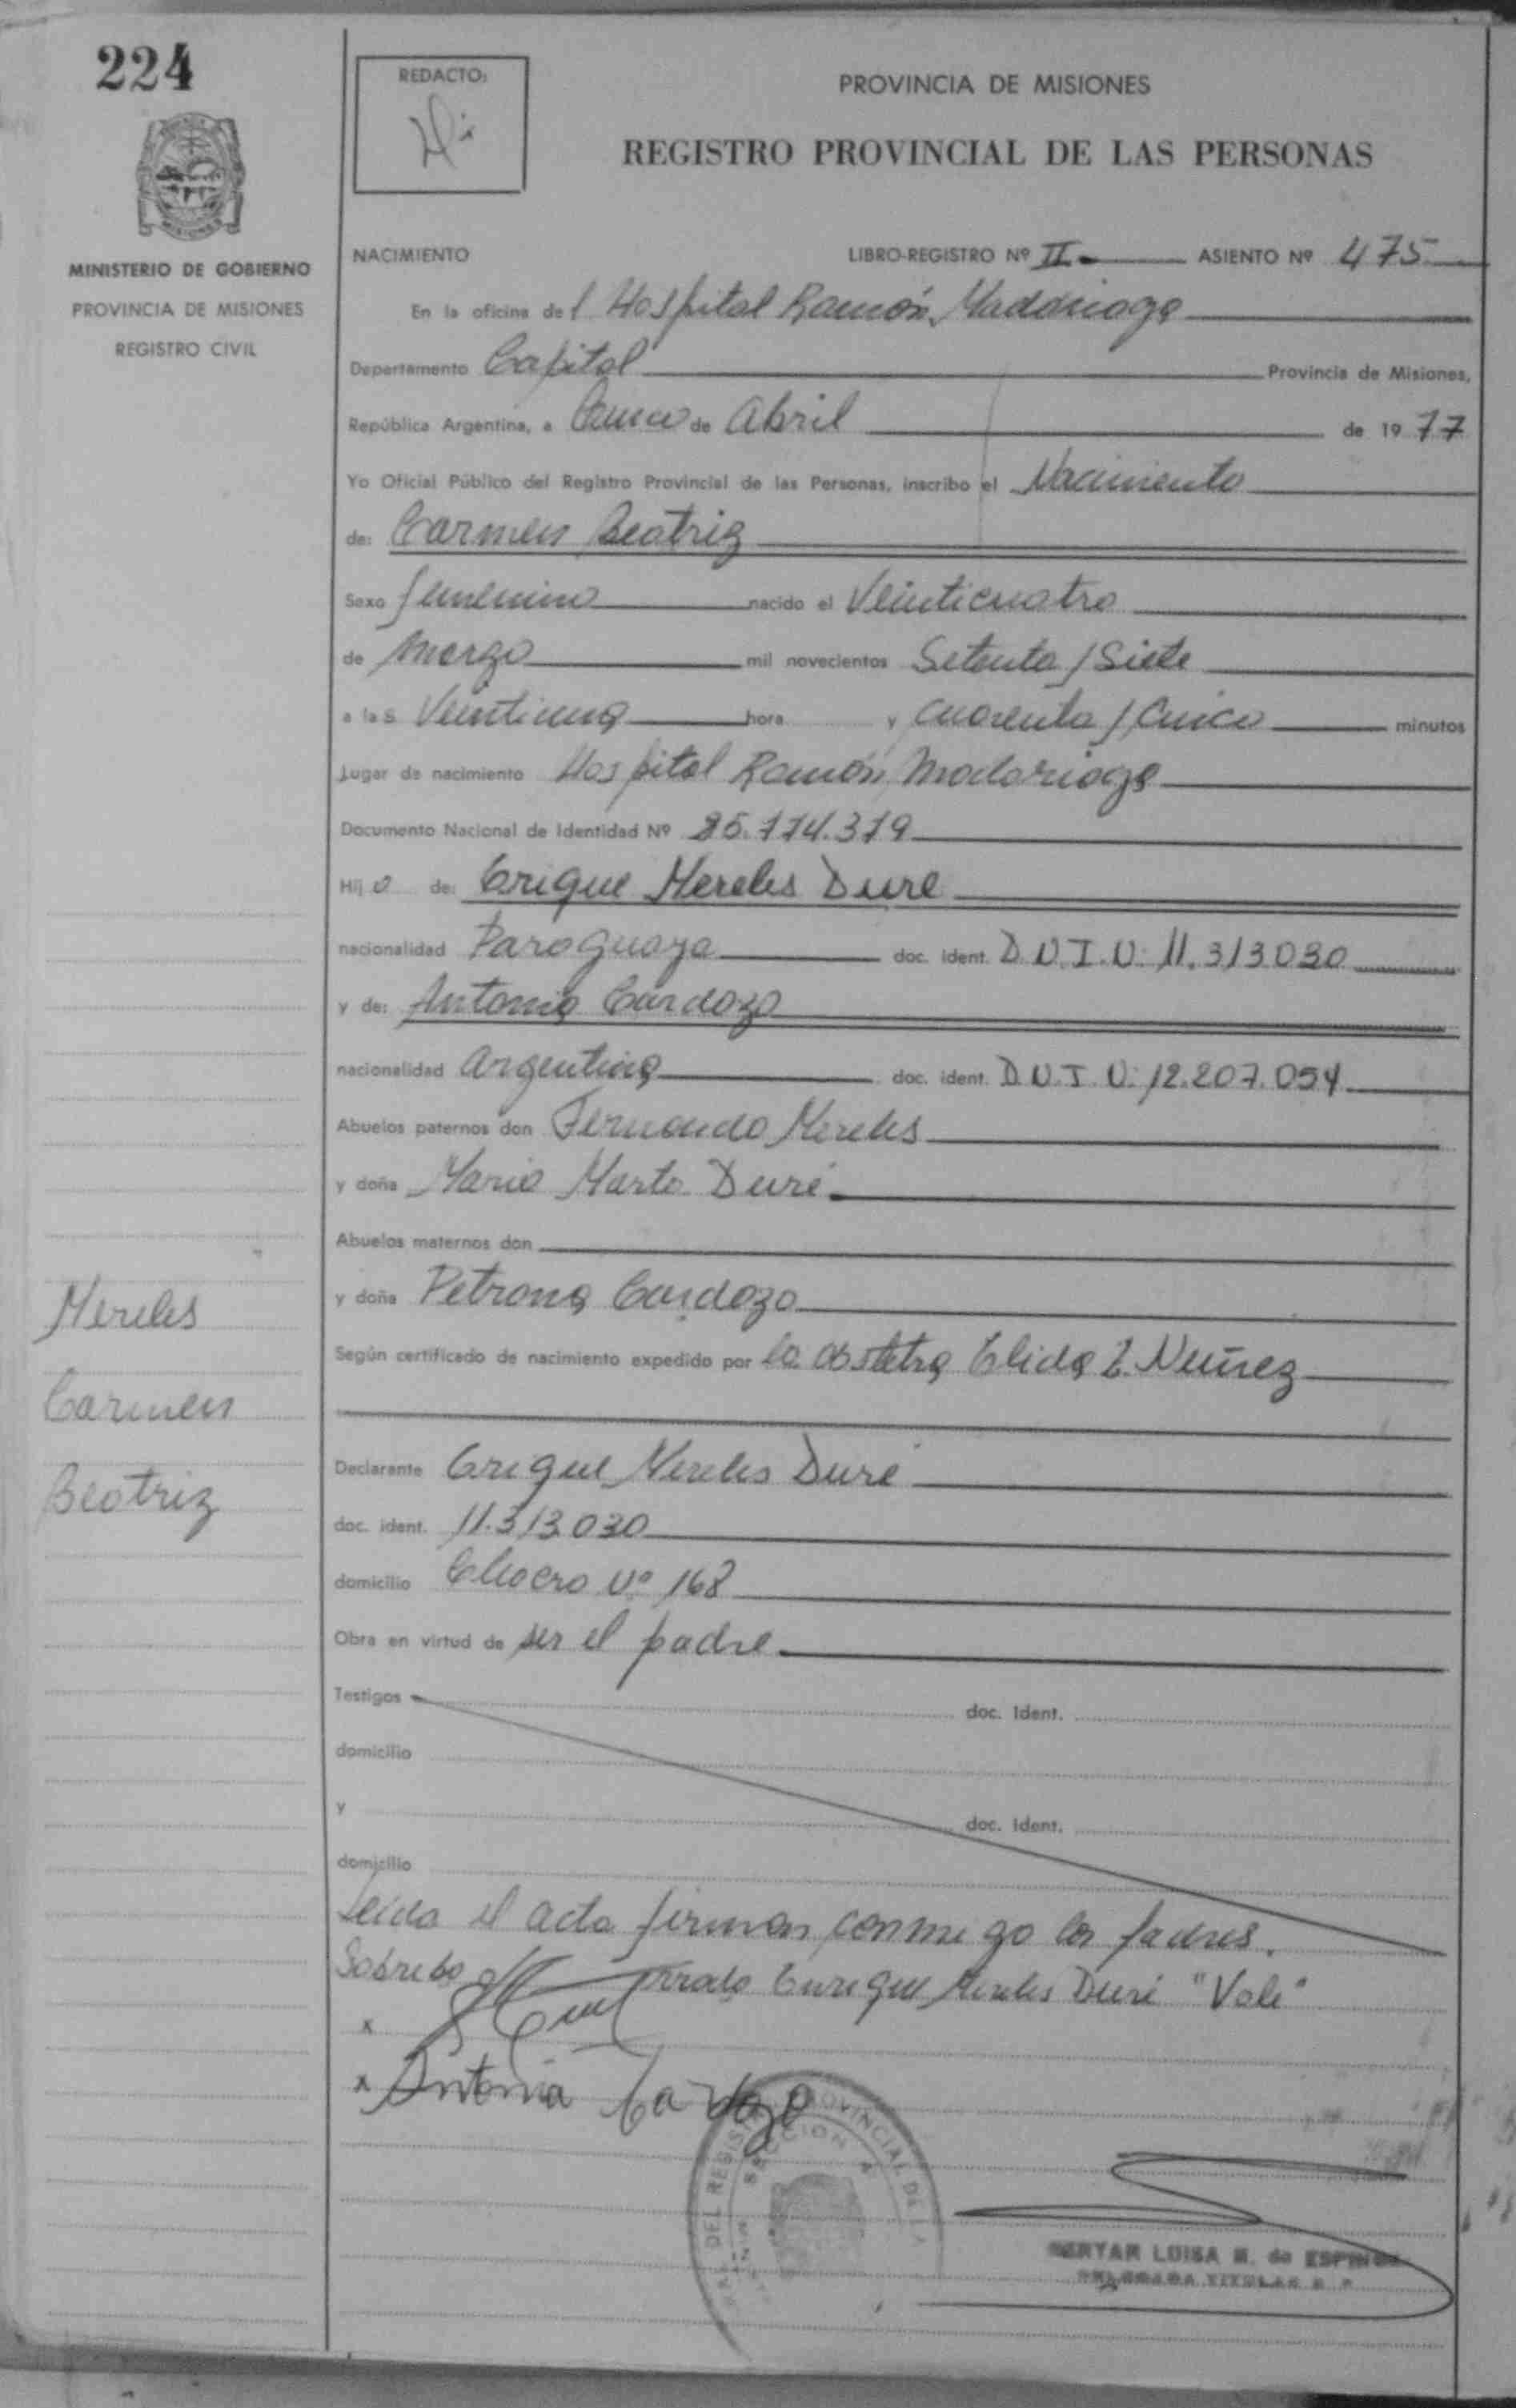 224
REDACTO:
PROVINCIA DE MISIONES
REGISTRO PROVINCIAL DE LAS PERSONAS
MISIONES
MINISTERIO DE GOBIERNO
PROVINCIA DE MISIONES
REGISTRO CIVIL
NACIMIENTO LIBRO-REGISTRO Nº II ASIENTO Nº 475
En la oficina del Hospital Ramón Madariaga
Departamento Capital Provincia de Misiones,
República Argentina, a Cinco de Abril de 1977
Yo Oficial Público del Registro Provincial de las Personas, inscribo el Nacimiento
de: Carmen Beatriz
Sexo femenino nacido el Veinticuatro
de Marzo mil novecientos Setenta / Siete
a las Veintiuna hora y Cuarenta / Cinco minutos
Lugar de nacimiento Hospital Ramón Madariaga
Documento Nacional de Identidad Nº 25.114.319
Hijo de: Erique Mereles Dure
nacionalidad Paraguaya doc. ident. D.N.I.N: 11.313.030
y de: Antonia Cardozo
nacionalidad Argentina doc. ident. D.N.I.N: 12.207.054
Abuelos paternos don Fernando Mereles
y doña Maria Marta Duré
Abuelos maternos don
y doña Petrona Cardozo
Según certificado de nacimiento expedido por la obstetra Elida Z. Nuñez
Declarante Erique Mereles Duré
doc. ident. 11.313.030
domicilio Chacra Nº 168
Obra en virtud de ser el padre
Testigos doc. Ident.
domicilio
y doc. Ident.
domicilio
Leida el acta firman conmigo los padres.
Sobrebo rrado Enrique Mereles Duré "Vale"
x
x Antonia Cardozo
Mereles
Carmen
Beatriz
DEL REGISTRO PROVINCIAL DE LA
SECCION A
MERYAM LUISA M. de ESPINOZA
DELEGADA TITULAR R. P.